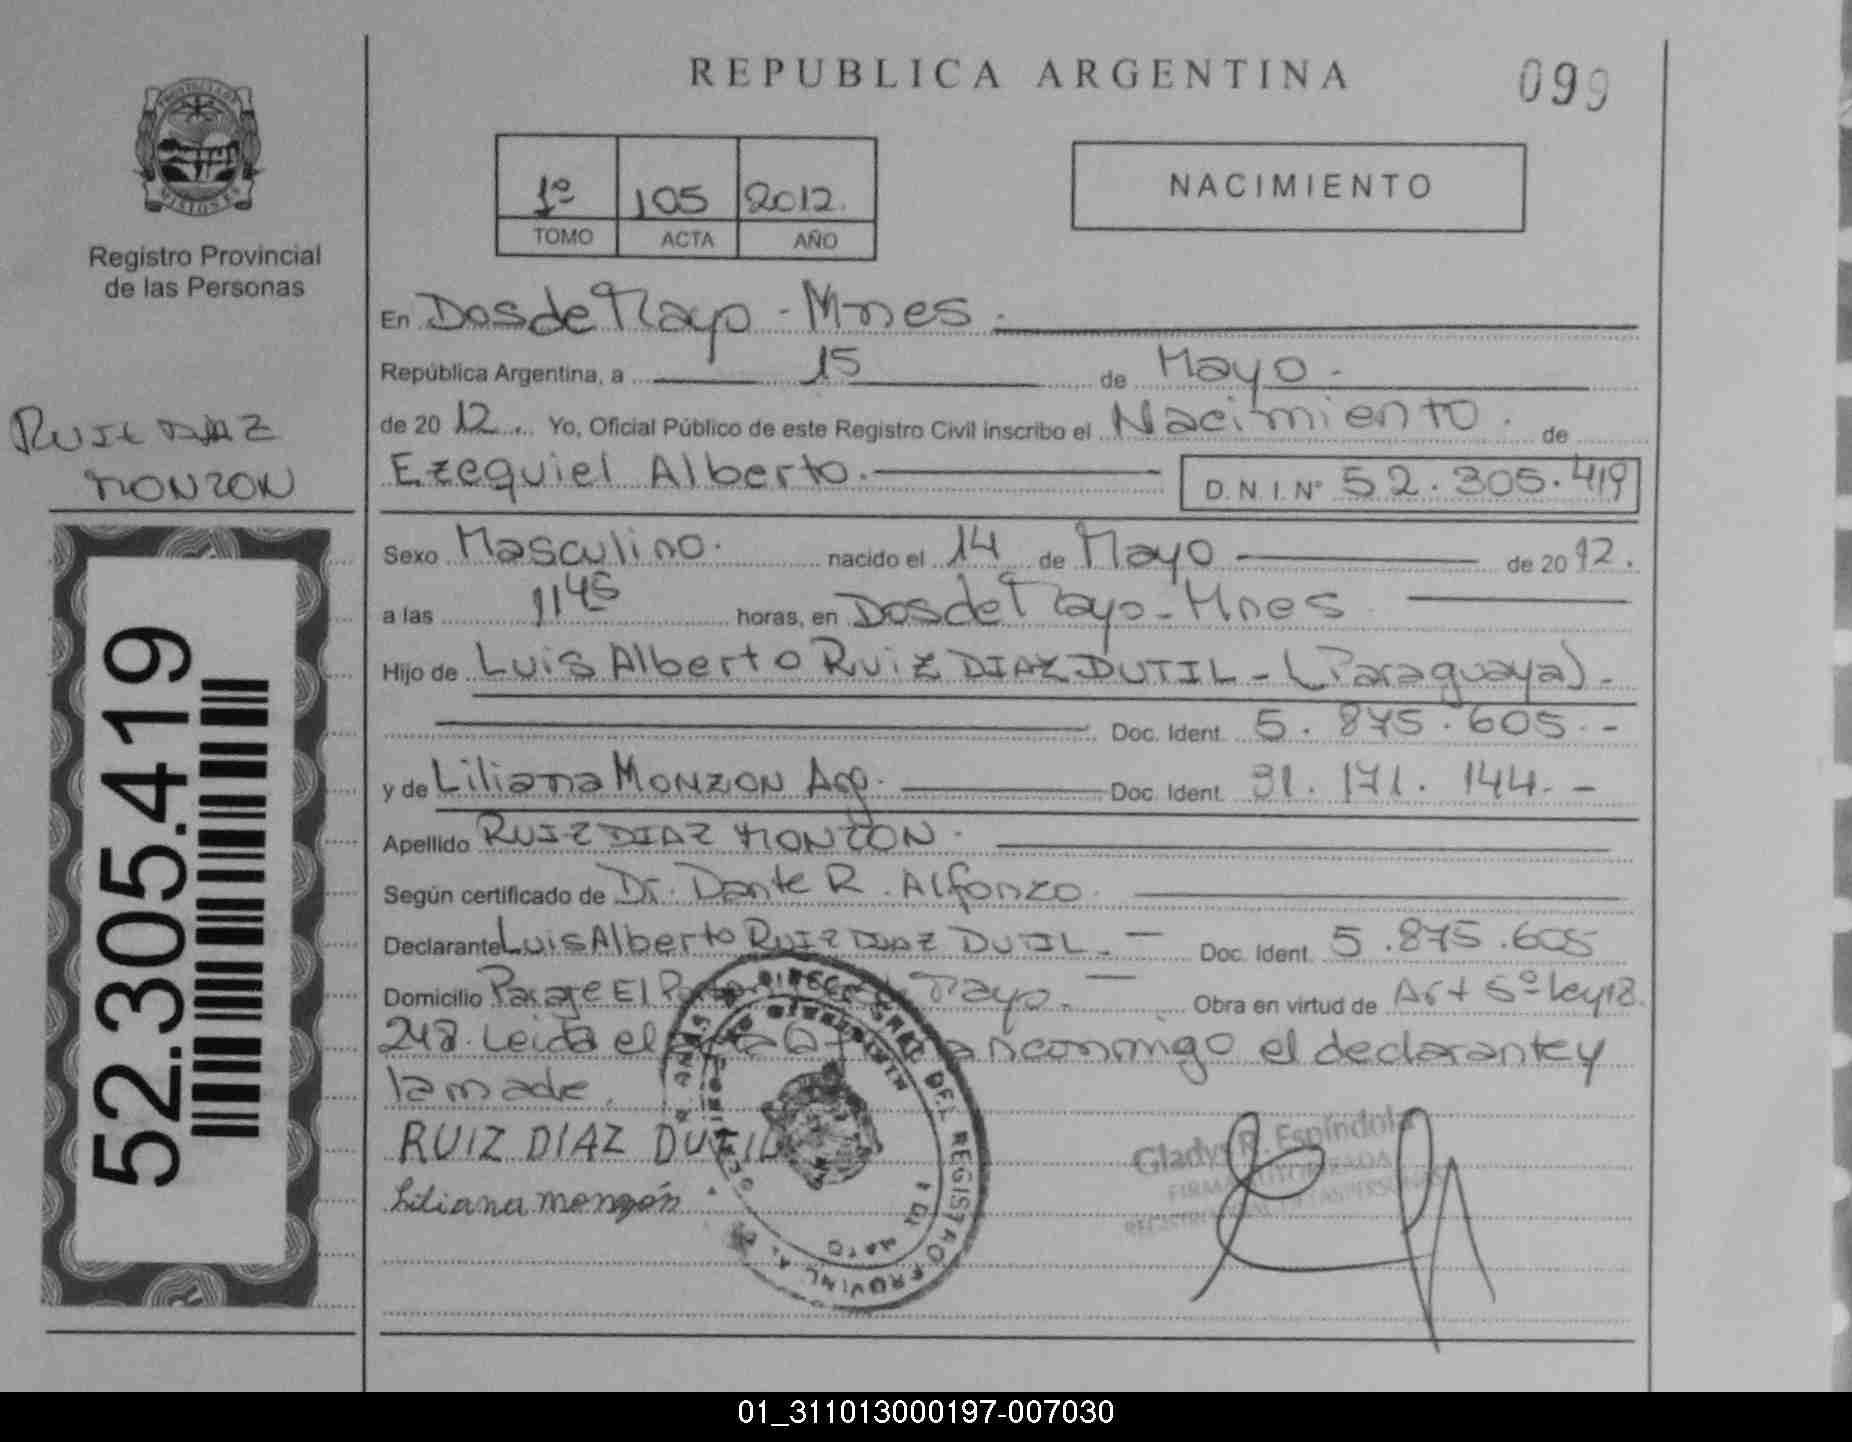 REPUBLICA ARGENTINA
099
1º 105 2012.
TOMO ACTA AÑO
NACIMIENTO
Registro Provincial
de las Personas
RUIZ DIAZ
MONZON
52.305.419
En Dos de Mayo - Mnes.
República Argentina, a 15 de Mayo.
de 2012. Yo, Oficial Público de este Registro Civil inscribo el Nacimiento. de
Ezequiel Alberto. D.N.I. Nº 52.305.419
Sexo Masculino. nacido el 14 de Mayo de 2012.
a las 1145 horas, en Dos de Mayo - Mnes.
Hijo de Luis Alberto RUIZ DIAZ DUTIL - (Paraguaya).
Doc. Ident. 5.875.605.-
y de Liliana MONZON Arg. Doc. Ident. 31.171.144.-
Apellido RUIZ DIAZ MONZON.
Según certificado de Dr. Dante R. Alfonzo.
Declarante Luis Alberto RUIZ DIAZ DUTIL.- Doc. Ident. 5.875.605
Domicilio Paraje El Mayo.- Obra en virtud de Art 5º Ley 18.
248. Leida el conmigo el declarante y
la made.
RUIZ DIAZ DUTIL
Liliana monzón
Gladys R. Espíndola
FIRMA AUTORIZADA
DEL REGISTRO PROVINCIAL DE
01_311013000197-007030